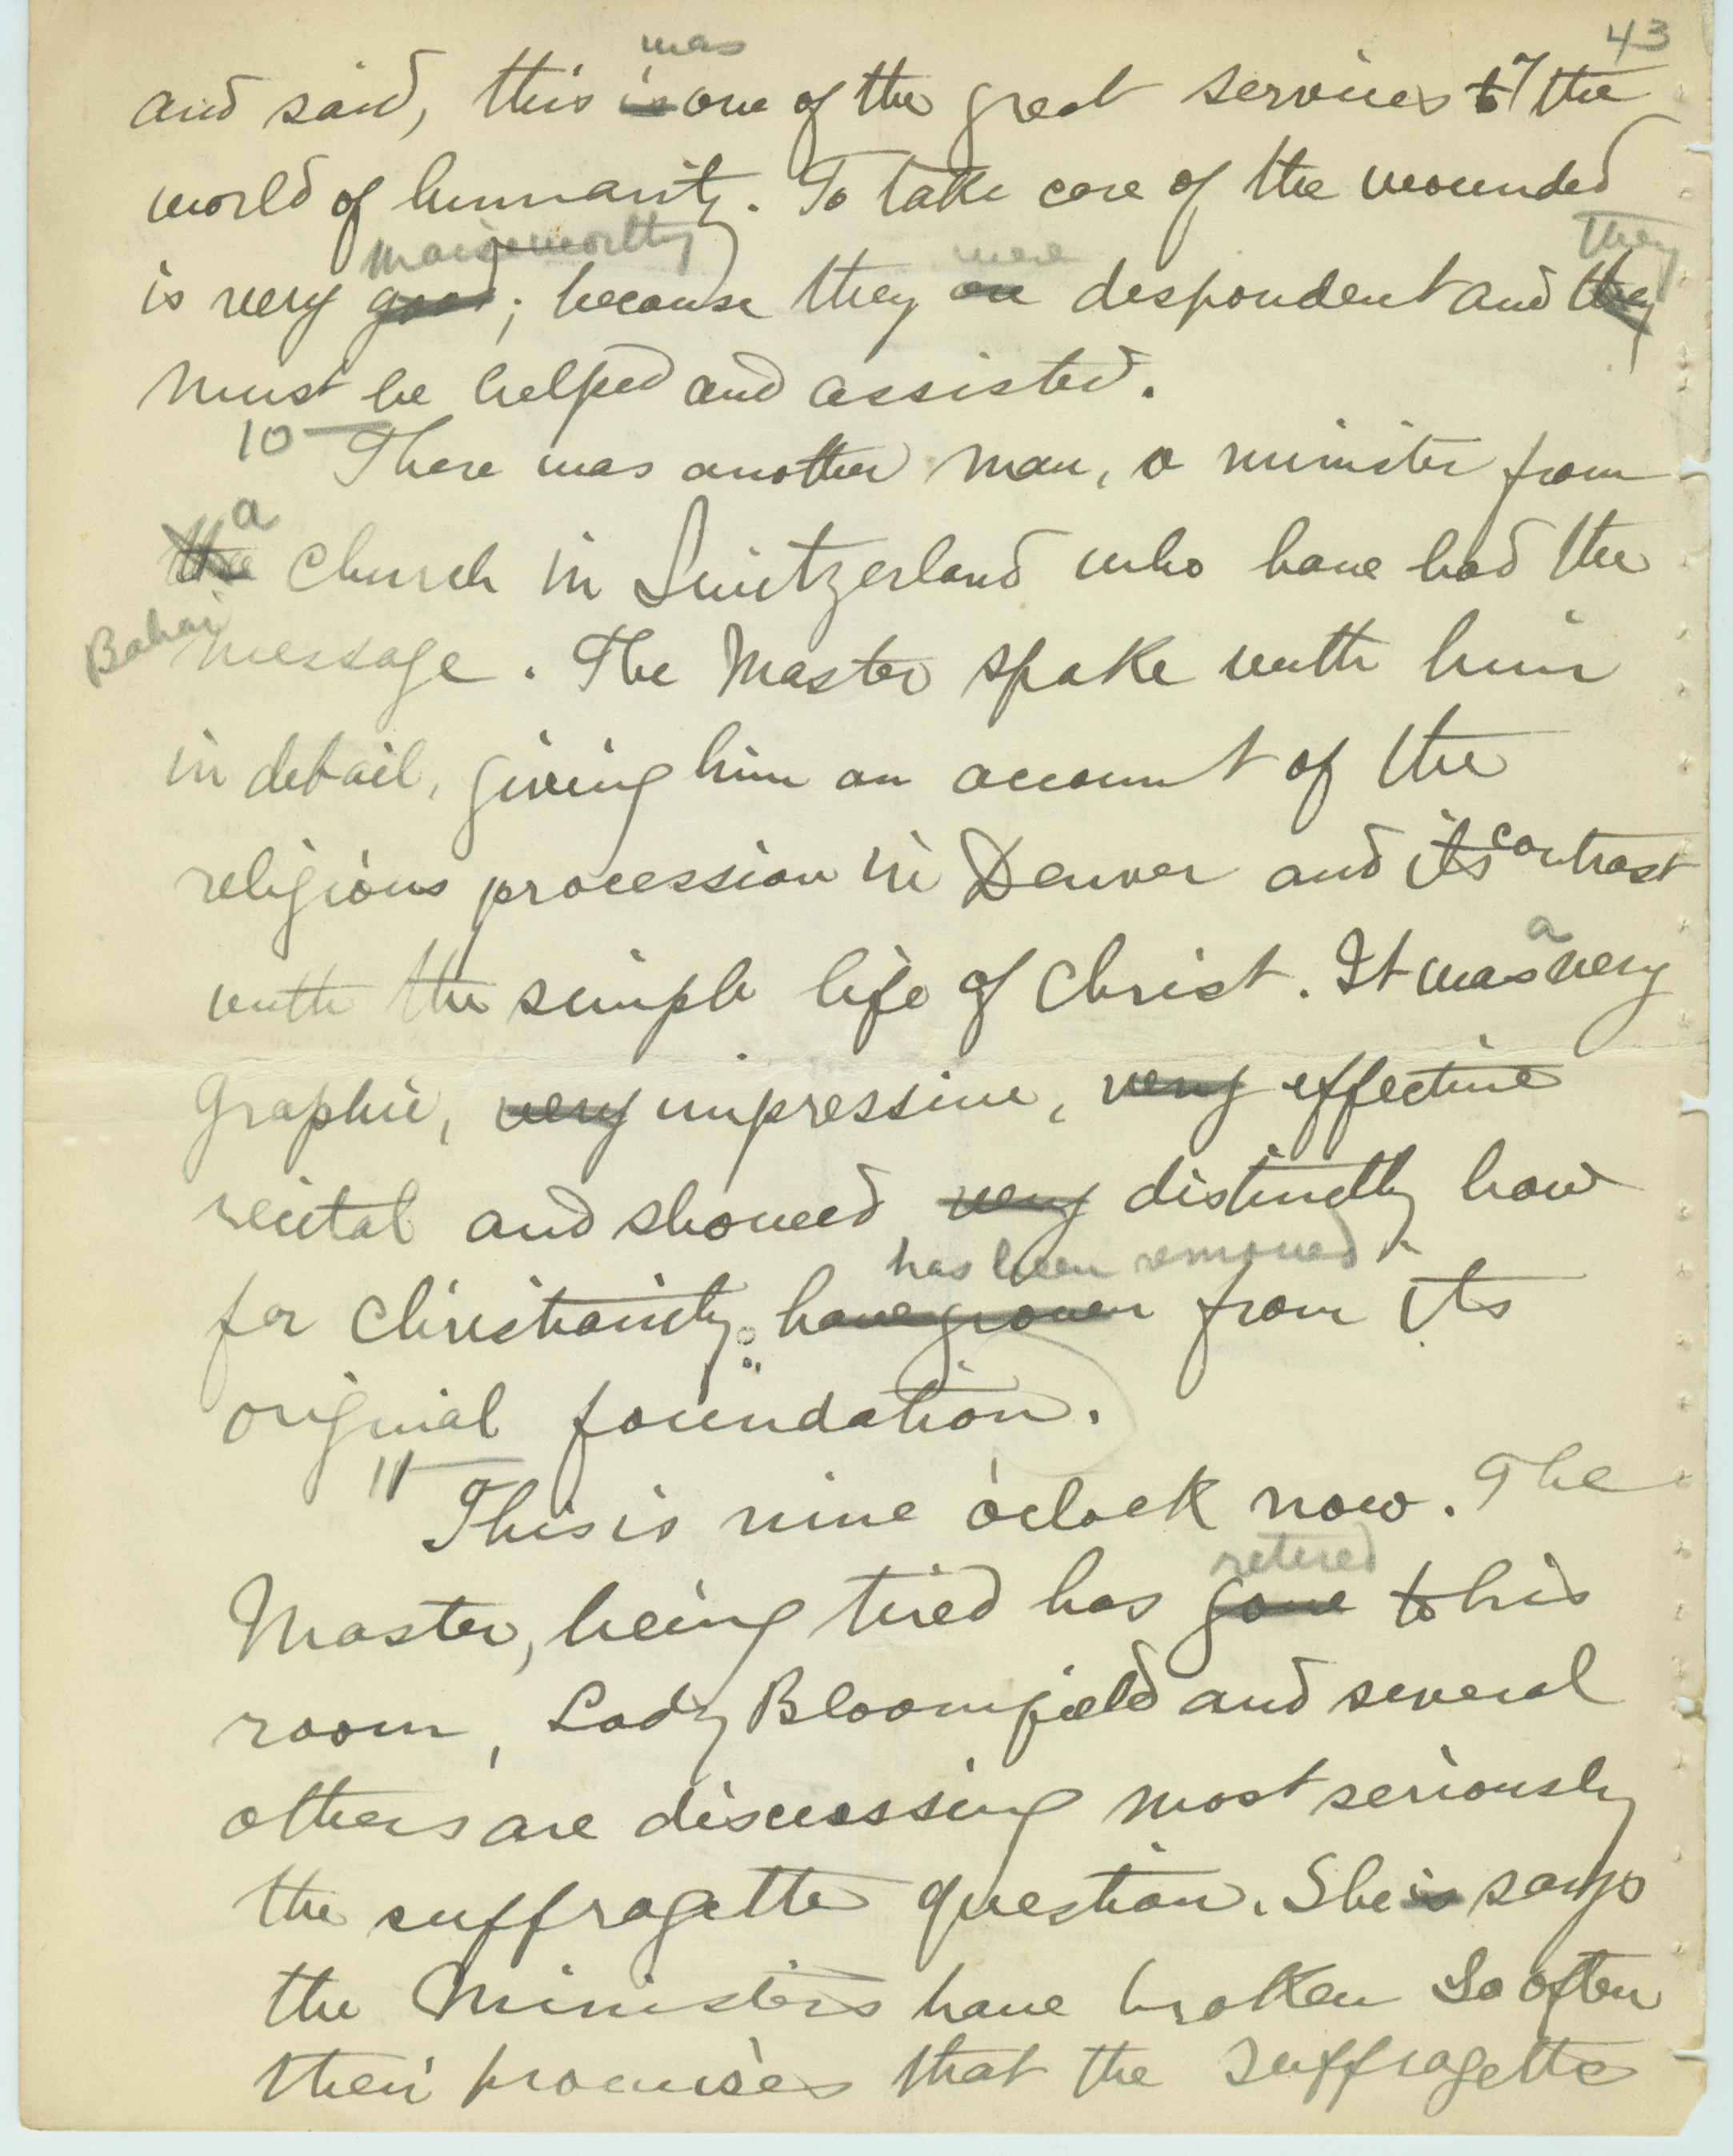 43
was
and said, this is one of the great services to the
world of humanity. To take care of the wounded
praiseworthy were they
is very good; because they are despondent and they
must be helped and assisted.
10 There was another man, a minister from
a
the church in Switzerland who have had the
Bahai message. The Master spoke with him
in detail, giving him an account of the
religious procession in Denver and its contrast
a
with the simple life of Christ. It was very
graphic, very impressive, very effective
recital and showed very distinctly how
has been removed
far Christianity have grown from its
original foundation.
11 This is nine o'clock now. The
retired
Master, being tired has gone to his
room, Lady Bloomfield and several
others are discussing most seriously
the suffragette question. She is says
the Ministers have broken so often
their promises that the suffragette